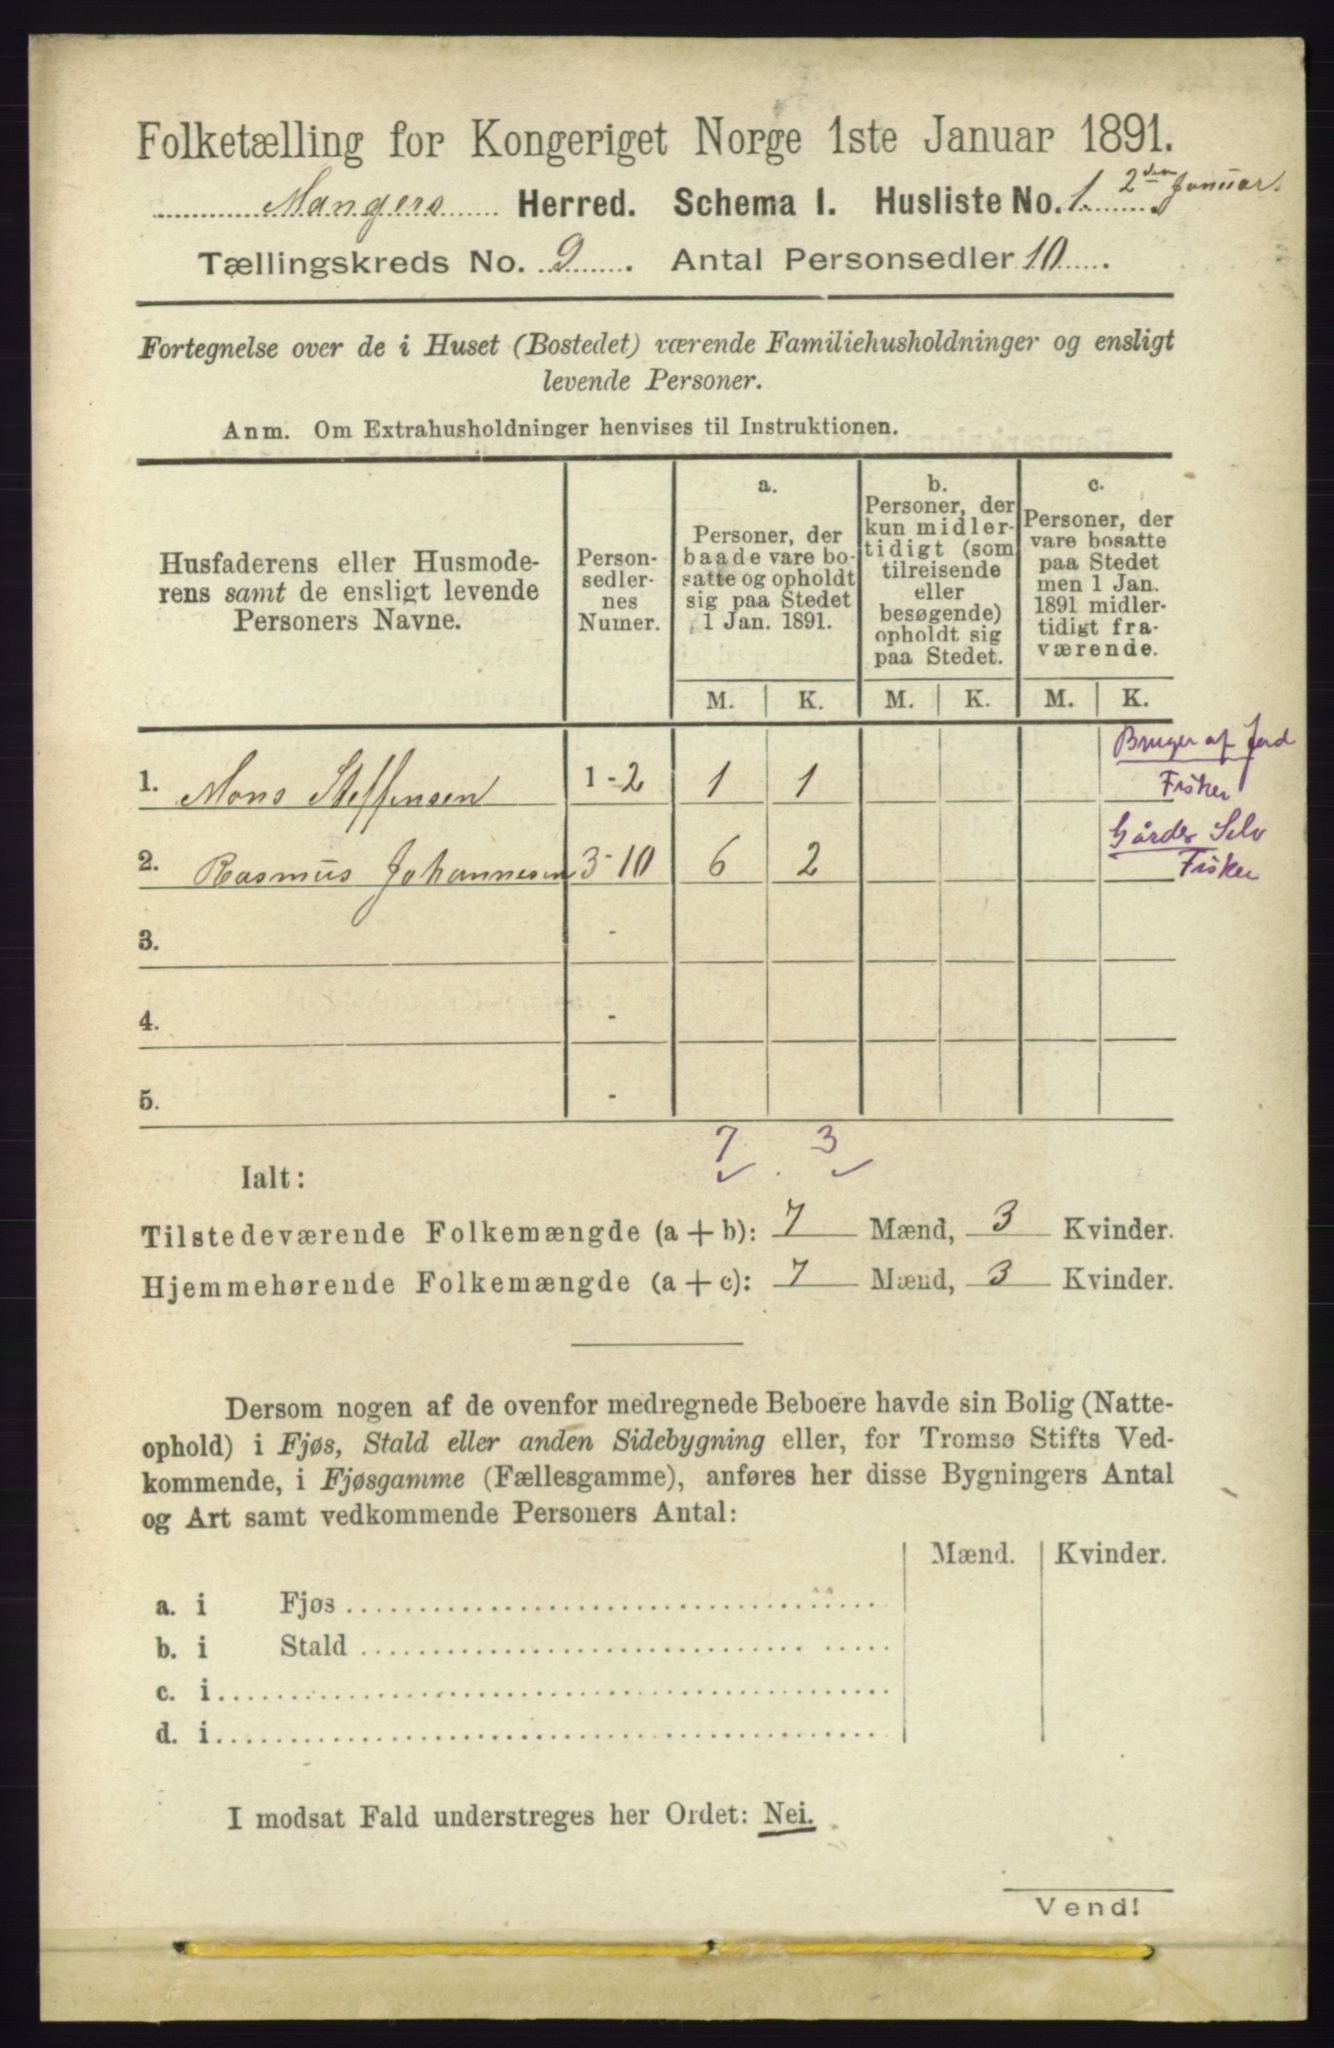 Folketælling for Kongeriget Norge 1ste Januar 1891.
Mangers Herred. Schema I. Husliste No. 1 2den Januar.
Tællingskreds No. 9. Antal Personsedler 10.
Fortegnelse over de i Huset (Bostedet) værende Familiehusholdninger og ensligt
levende Personer.
Anm. Om Extrahusholdninger henvises til Instruktionen.
Husfaderens eller Husmode-
rens samt de ensligt levende
Personers Navne.
Person-
sedler-
nes
Numer.
a.
Personer, der
baade vare bo-
satte og opholdt
sig paa Stedet
1 Jan. 1891.
b.
Personer, der
kun midler-
tidigt (som
tilreisende
eller
besøgende)
opholdt sig
paa Stedet.
c.
Personer, der
vare bosatte
paa Stedet
men 1 Jan.
1891 midler-
tidigt fra-
værende.
M. K. M. K. M. K.
1. Mons Steffensen 1-2 1 1 Bruger af Jord
Fisker
2. Rasmus Johannesen 3-10 6 2 Gårdbr Selv
Fisker
3. -
4. -
5. -
7 3
Ialt:
Tilstedeværende Folkemængde (a + b): 7 Mænd, 3 Kvinder.
Hjemmehørende Folkemængde (a + c): 7 Mænd, 3 Kvinder.
Dersom nogen af de ovenfor medregnede Beboere havde sin Bolig (Natte-
ophold) i Fjøs, Stald eller anden Sidebygning eller, for Tromsø Stifts Ved-
kommende, i Fjøsgamme (Fællesgamme), anføres her disse Bygningers Antal
og Art samt vedkommende Personers Antal:
Mænd. Kvinder.
a. i Fjøs
b. i Stald
c. i
d. i
I modsat Fald understreges her Ordet: Nei.
Vend!